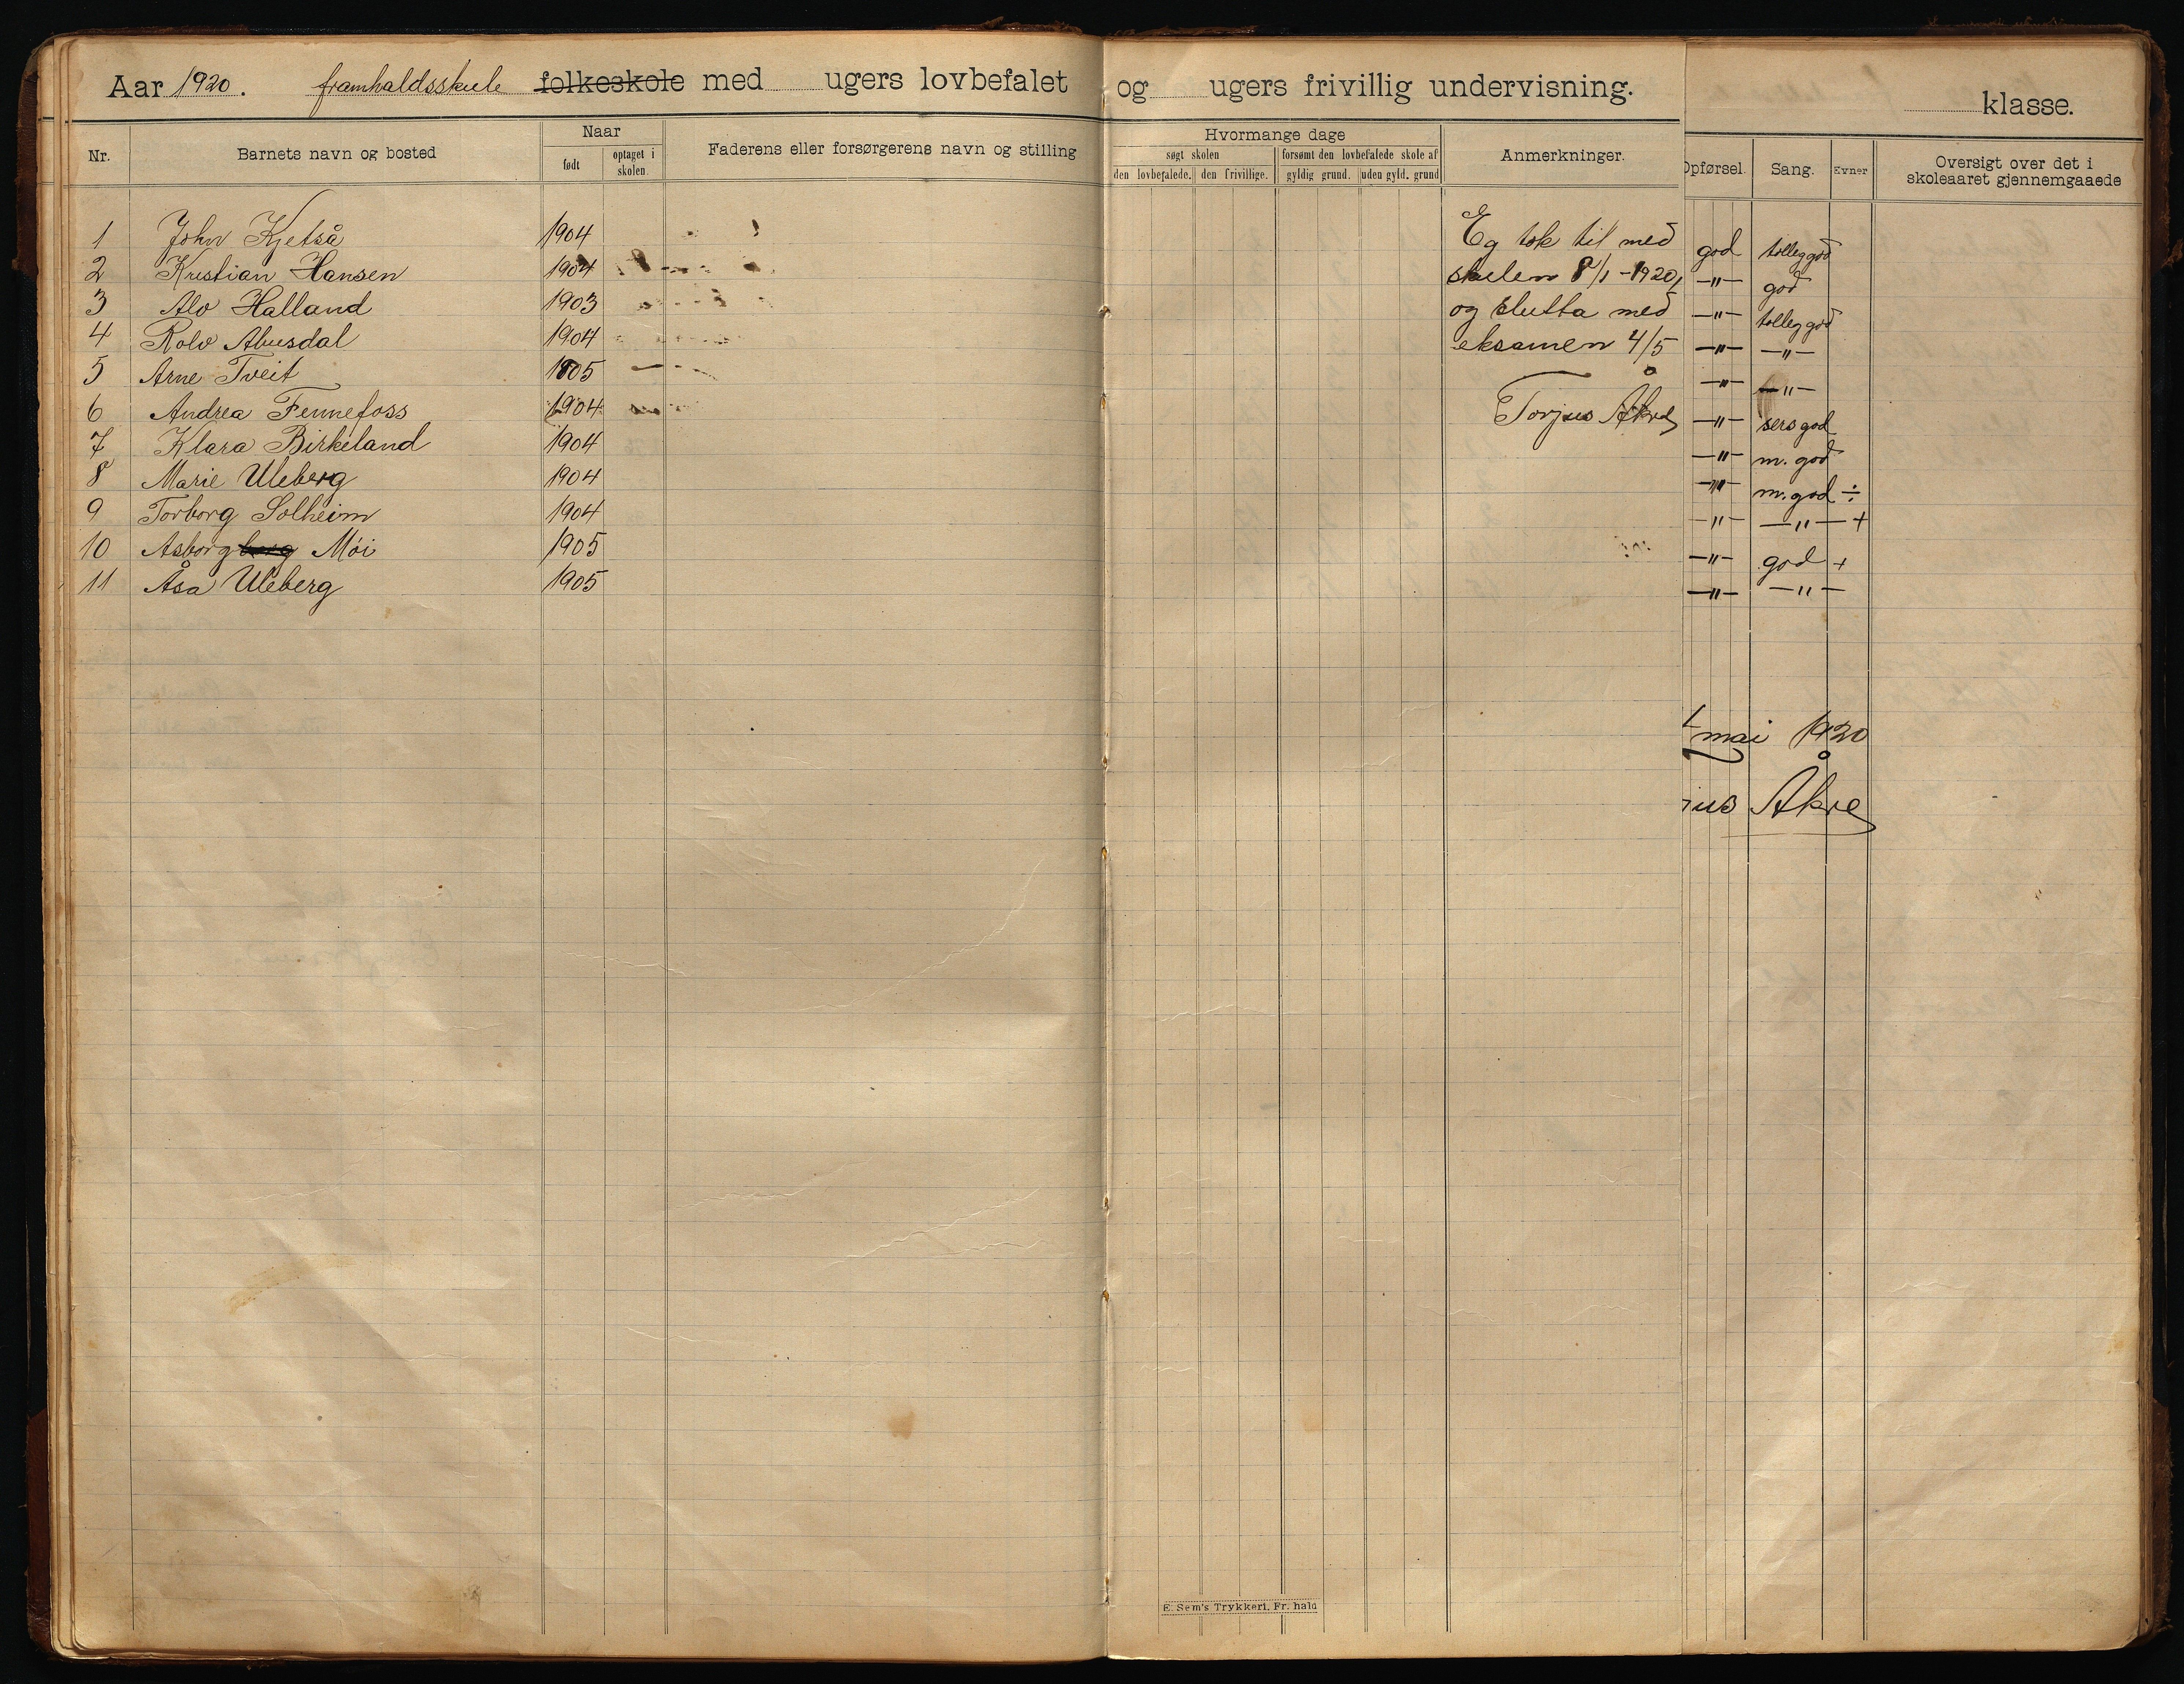 Aar 1920. framhaldsskule folkeskole med ugers lovbefalet og ugers frivillig undervisning.
klasse.
Nr. Barnets navn og bosted Naar født optaget i skolen. Faderens eller forsørgerens navn og stilling
Hvormange dage
søgt skolen forsømt den lovbefalede skole af
den lovbefalede. den frivillige. gyldig grund. uden gyld. grund
Anmerkninger.
Opførsel. Sang. Evner Oversigt over det i skoleaaret gjennemgaaede
1 John Kjetså 1904
2 Kristian Hansen 1904
3 Alv Halland 1903
4 Rolv Abusdal 1904
5 Arne Tveit 1905
6 Andrea Fennefoss 1904
7 Klara Birkeland 1904
8 Marie Uleberg 1904
9 Torborg Solheim 1904
10 Asborg berg Mói 1905
11 Åsa Uleberg 1905
Eg tok til med
skulen 8/1 - 1920,
og slutta med
eksamen 4/5
Torjus Åkre
god tolleg god
—"— god
—"— tolleg god
—"— —"—
—"— —"—
—"— sers god
—"— m. god
—"— m. god ÷
—"— —"— +
—"— god +
—"— —"—
mai 1920
jus Åkre
E. Sem's Trykkeri, Fr. hald